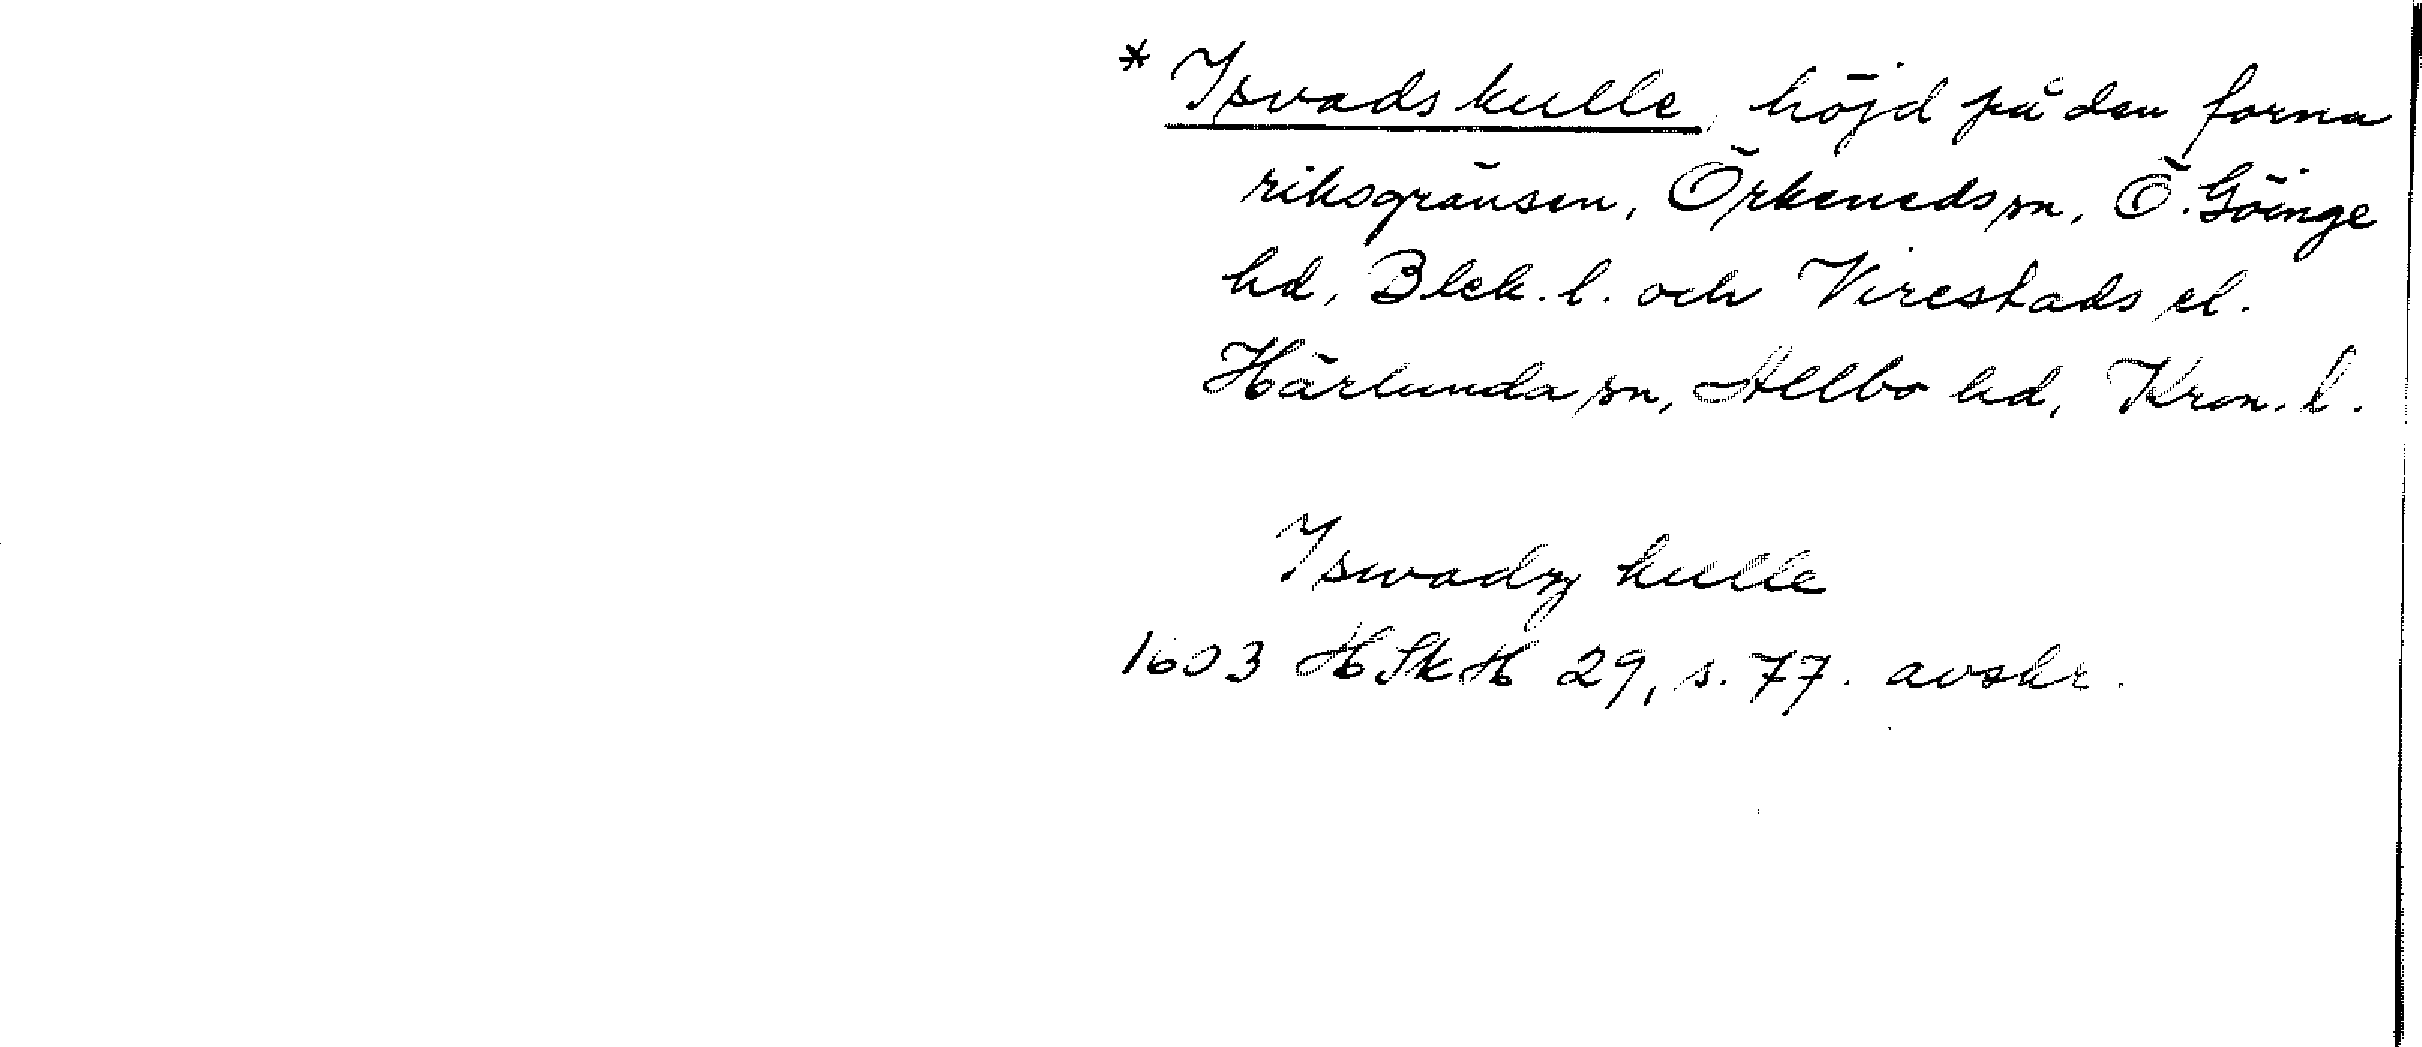 * Isvadskulle, höjd på den forna
riksgränsen, Örkeneds sn, Ö. Göinge
hd, Blek. l. och Virestads el.
Härlunda sn, Allbo hd, Kron. l.
Iswadz kulle
1603 HSkH 29, s. 77. avskr.